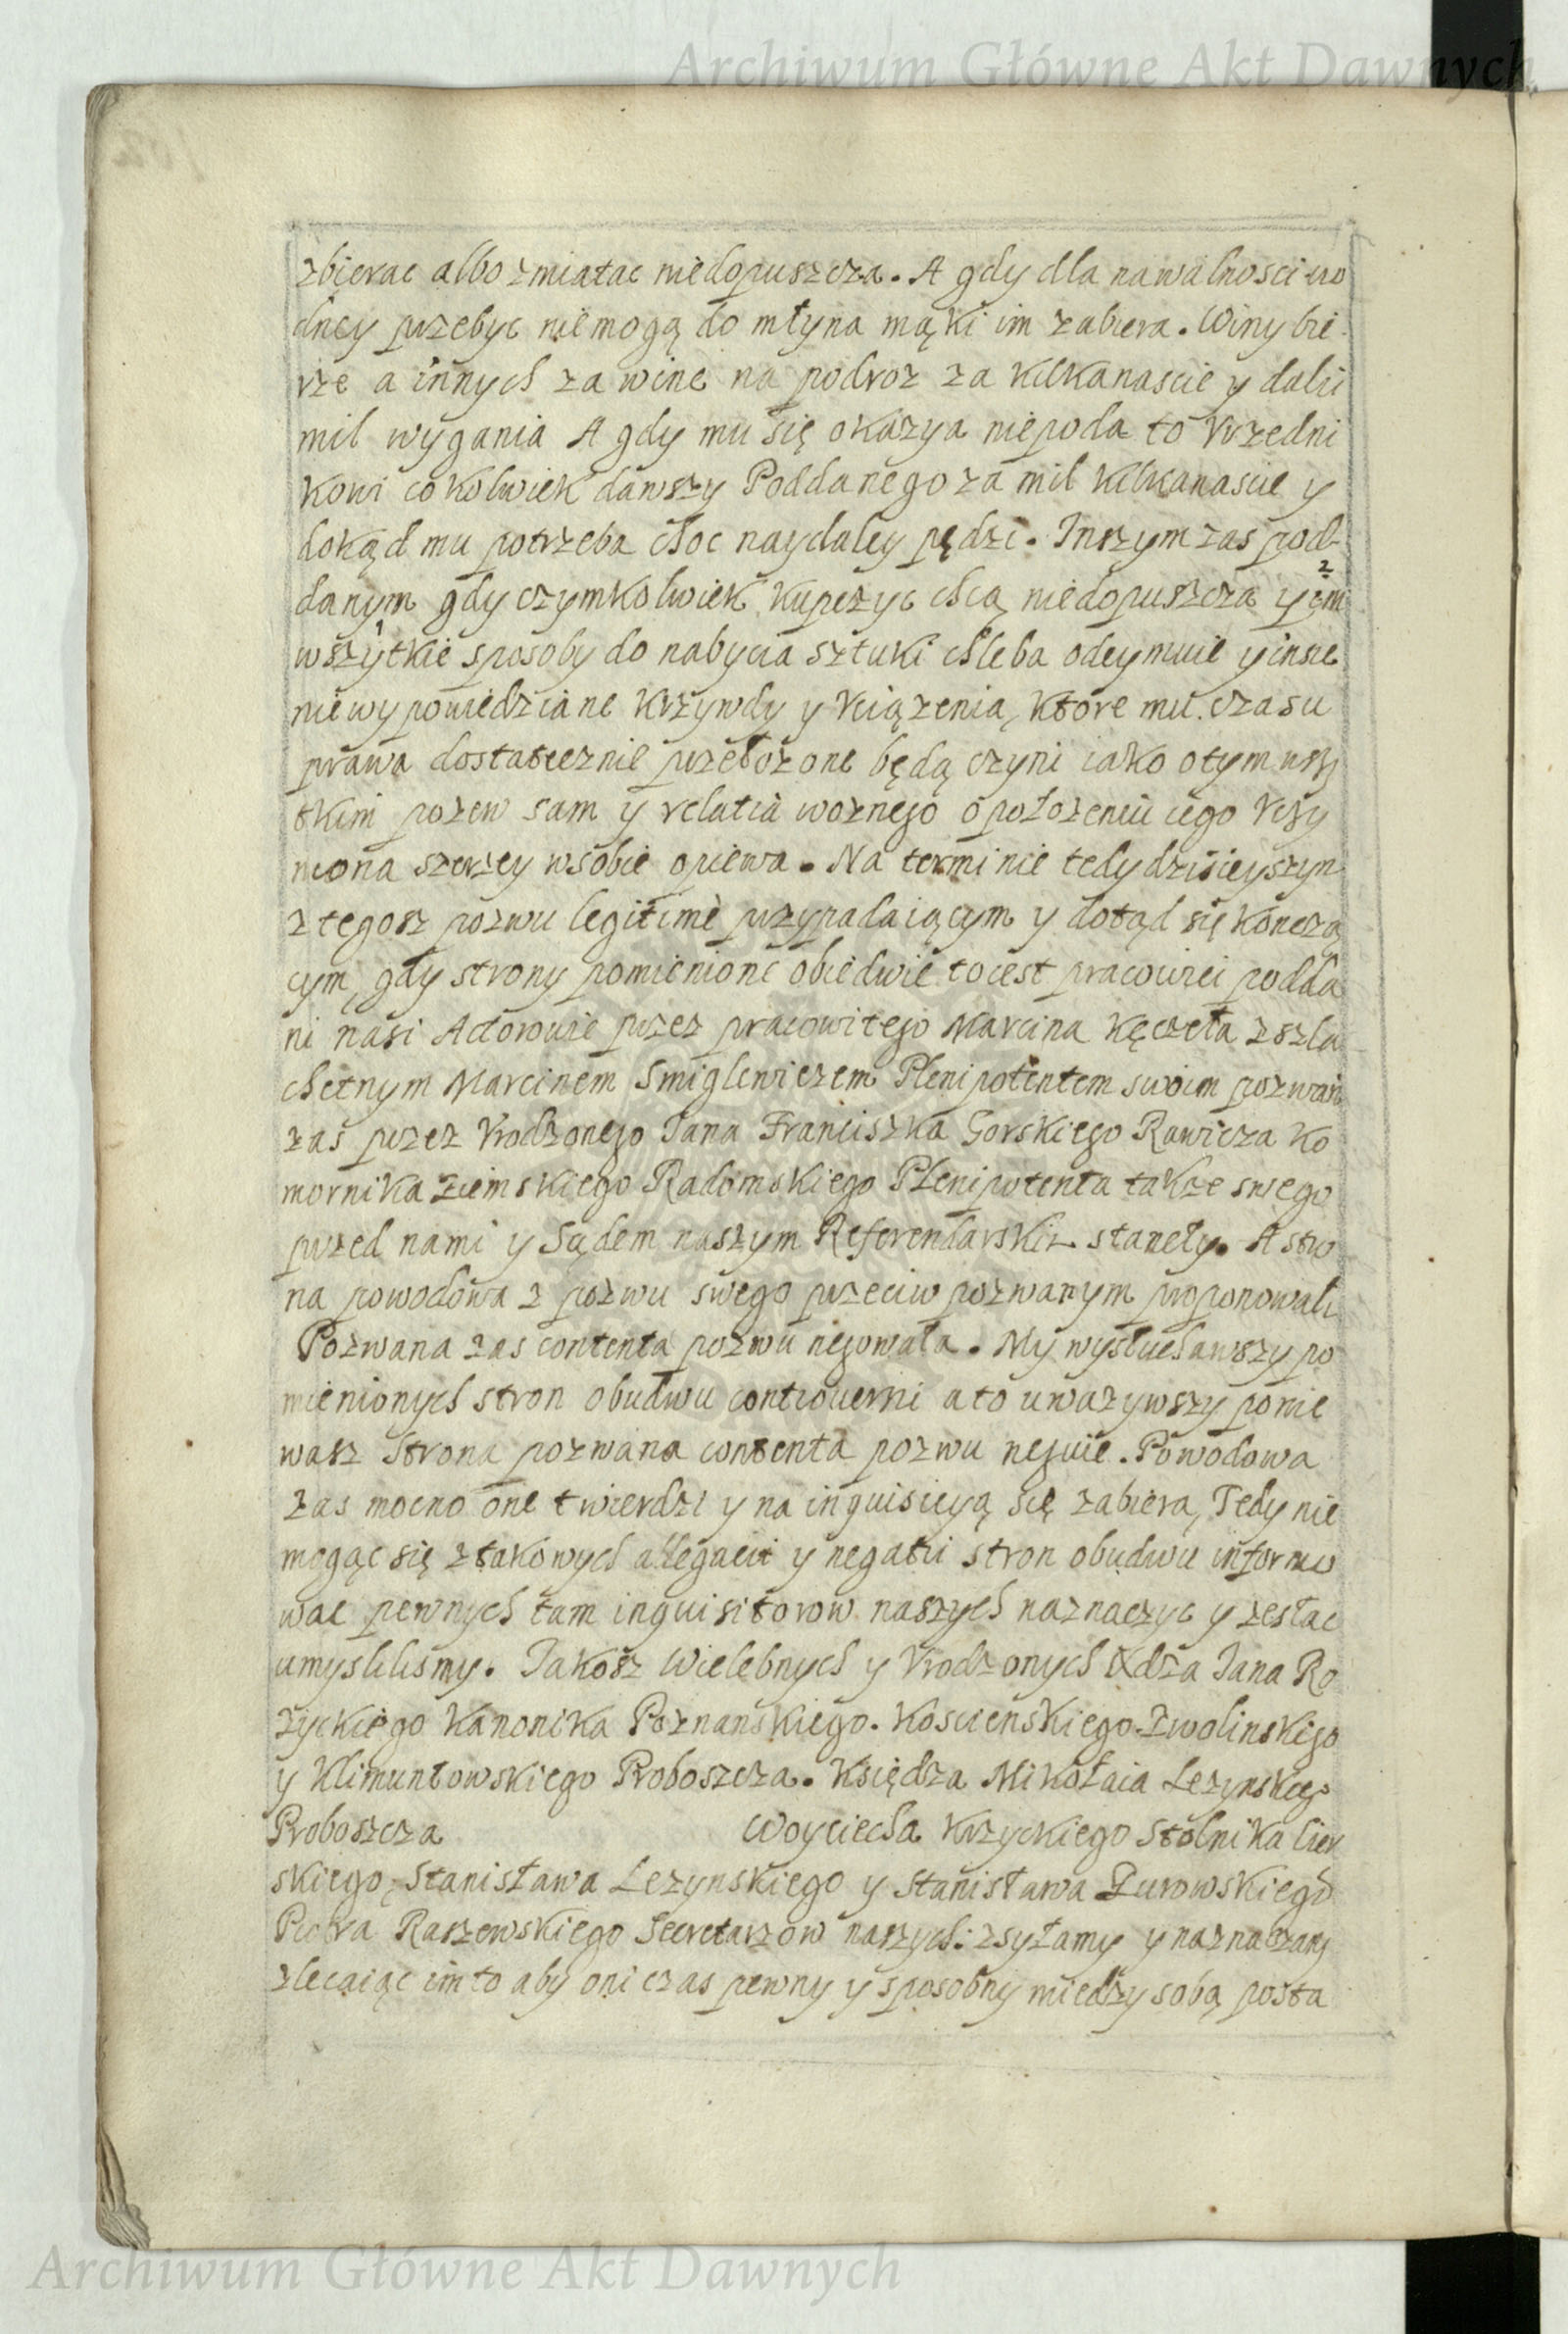 Archiwum Główne Akt Dawnych
zbierac albo zmiatac niedopuszcza. A gdy dla nawalnosci wo
dney przebyc niemogą do młyna mąki im zabiera. Winy bie-
rze a innych za winę na podroz za kilkanascie y dalii
mil wygania A gdy mu się okazya niepoda to Vrzedni
kowi cokolwiek dawszy Poddanego za mil kilkanascie y
dokąd mu potrzeba choc naydaley pędzi. Inszym zas pod-
danym gdy czymkolwiek kupczyc chcą niedopuszcza y
wszytkie sposoby do nabycia sztuki chleba odeymuie y insze
niewypowiedziane krzywdy y Vciązenia, ktore mu czasu
prawa dostatecznie przełozone będą czyni iako o tym wszy
tkim pozew sam y relatia woznego o połozeniu iego Vczy
niona szerzey w sobie opiewa. Na terminie tedy dzisieyszym
z tegosz pozwu legitimè przypadaiącym y dotąd się konczą
cym, gdy strony pomienione obiedwie to iest pracowici podda
ni nasi Actorowie przez pracowitego Marcina Kęczeła z szla
chetnym Marcinem Smiglewiczem Plenipotentem swoim pozwani
zas przez Vrodzonego Jana Franciszka Gorskiego Rawicza Ko
mornika Ziemskiego Radomskiego Plenipotenta takze swego
przed nami y Sądem naszym Referendarskim stanęły. A stro
na powodowa z pozwu swego przeciw pozwanym proponowała
Pozwana zas contenta pozwu negowała. My wysłuchawszy po
mienionych stron obudwu controuersii a to uwazywszy ponie
wasz strona pozwana contenta pozwu neguie. Powodowa
zas mocno one twierdzi y na inquisicyą się zabiera, Tedy nie
mogąc się z takowych allegacii y negatii stron obudwu informo
wac pewnych tam inquisitorow naszych naznaczyc y zesłac
umyslilismy. Jakosz Wielebnych y Vrodzonych Xdza Jana Ro
zyckiego Kanonika Poznanskiego. Koscienskiego. Zwolinskiego
y Klimuntowskiego Proboszcza. Księdza Mikołaia Lezynskiego
Proboszcza Woyciecha Krzyckiego Stolnika
skiego, Stanisława Lezynskiego y Stanisława Zurowskiego
Piotra Raszewskiego Secretarzow naszych: zsyłamy y naznaczamy
zlecaiąc im to aby oni czas pewny y sposobny miedzy sobą posta
Archiwum Główne Akt Dawnych